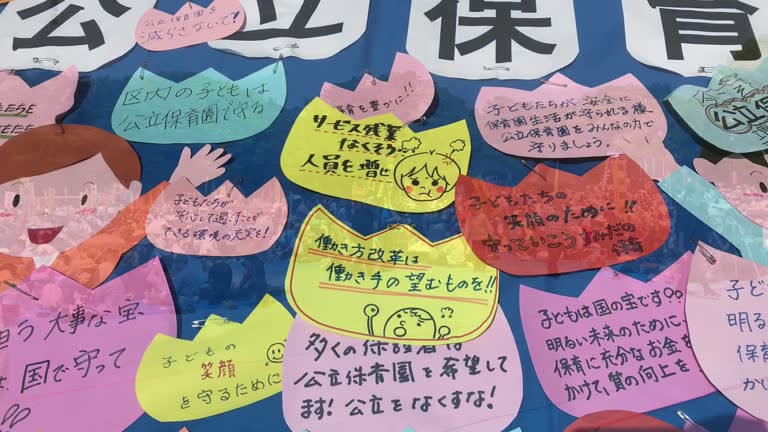 公立保育
公立保育園を
減らさないで!
区内の子どもは
公立保育園で守る
保育を豊かに!!
サービス残業
なくそう
人員を増せ
子どもたちが安全に
保育園生活が守られる様
公立保育園をみんなの力で
守りましょう。
子どもたちが
安心して過ごすことが
できる環境の充実を!
子どもたちの
笑顔のために!!
守っていこうすみだの
保育
働き方改革は
働き手の望むものを!!
大事な宝
国で守って
子どもの
笑顔
を守るために
多くの保護者は
公立保育園を希望して
ます!公立をなくすな!
子どもは国の宝です
明るい未来のために、
保育に充分なお金を
かけて、質の向上を
子ど
明るい
保育
かけ